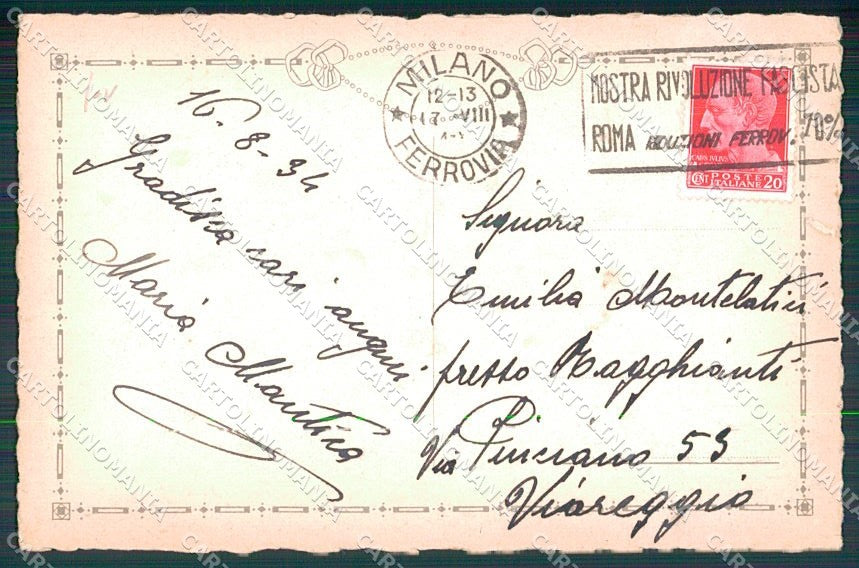 MILANO
12-13
17 VIII
FERROVIA
MOSTRA RIVOLUZIONE FASCISTA
ROMA RIDUZIONI FERROV. 70%
POSTE
ITALIANE
CENT 20
16-8-34
Graditia cari auguri
Maria
Signora
Emilia Montelatici
presso Ragghianti
Via Pinciano 53
Viareggio
CARTOLINOMANIA